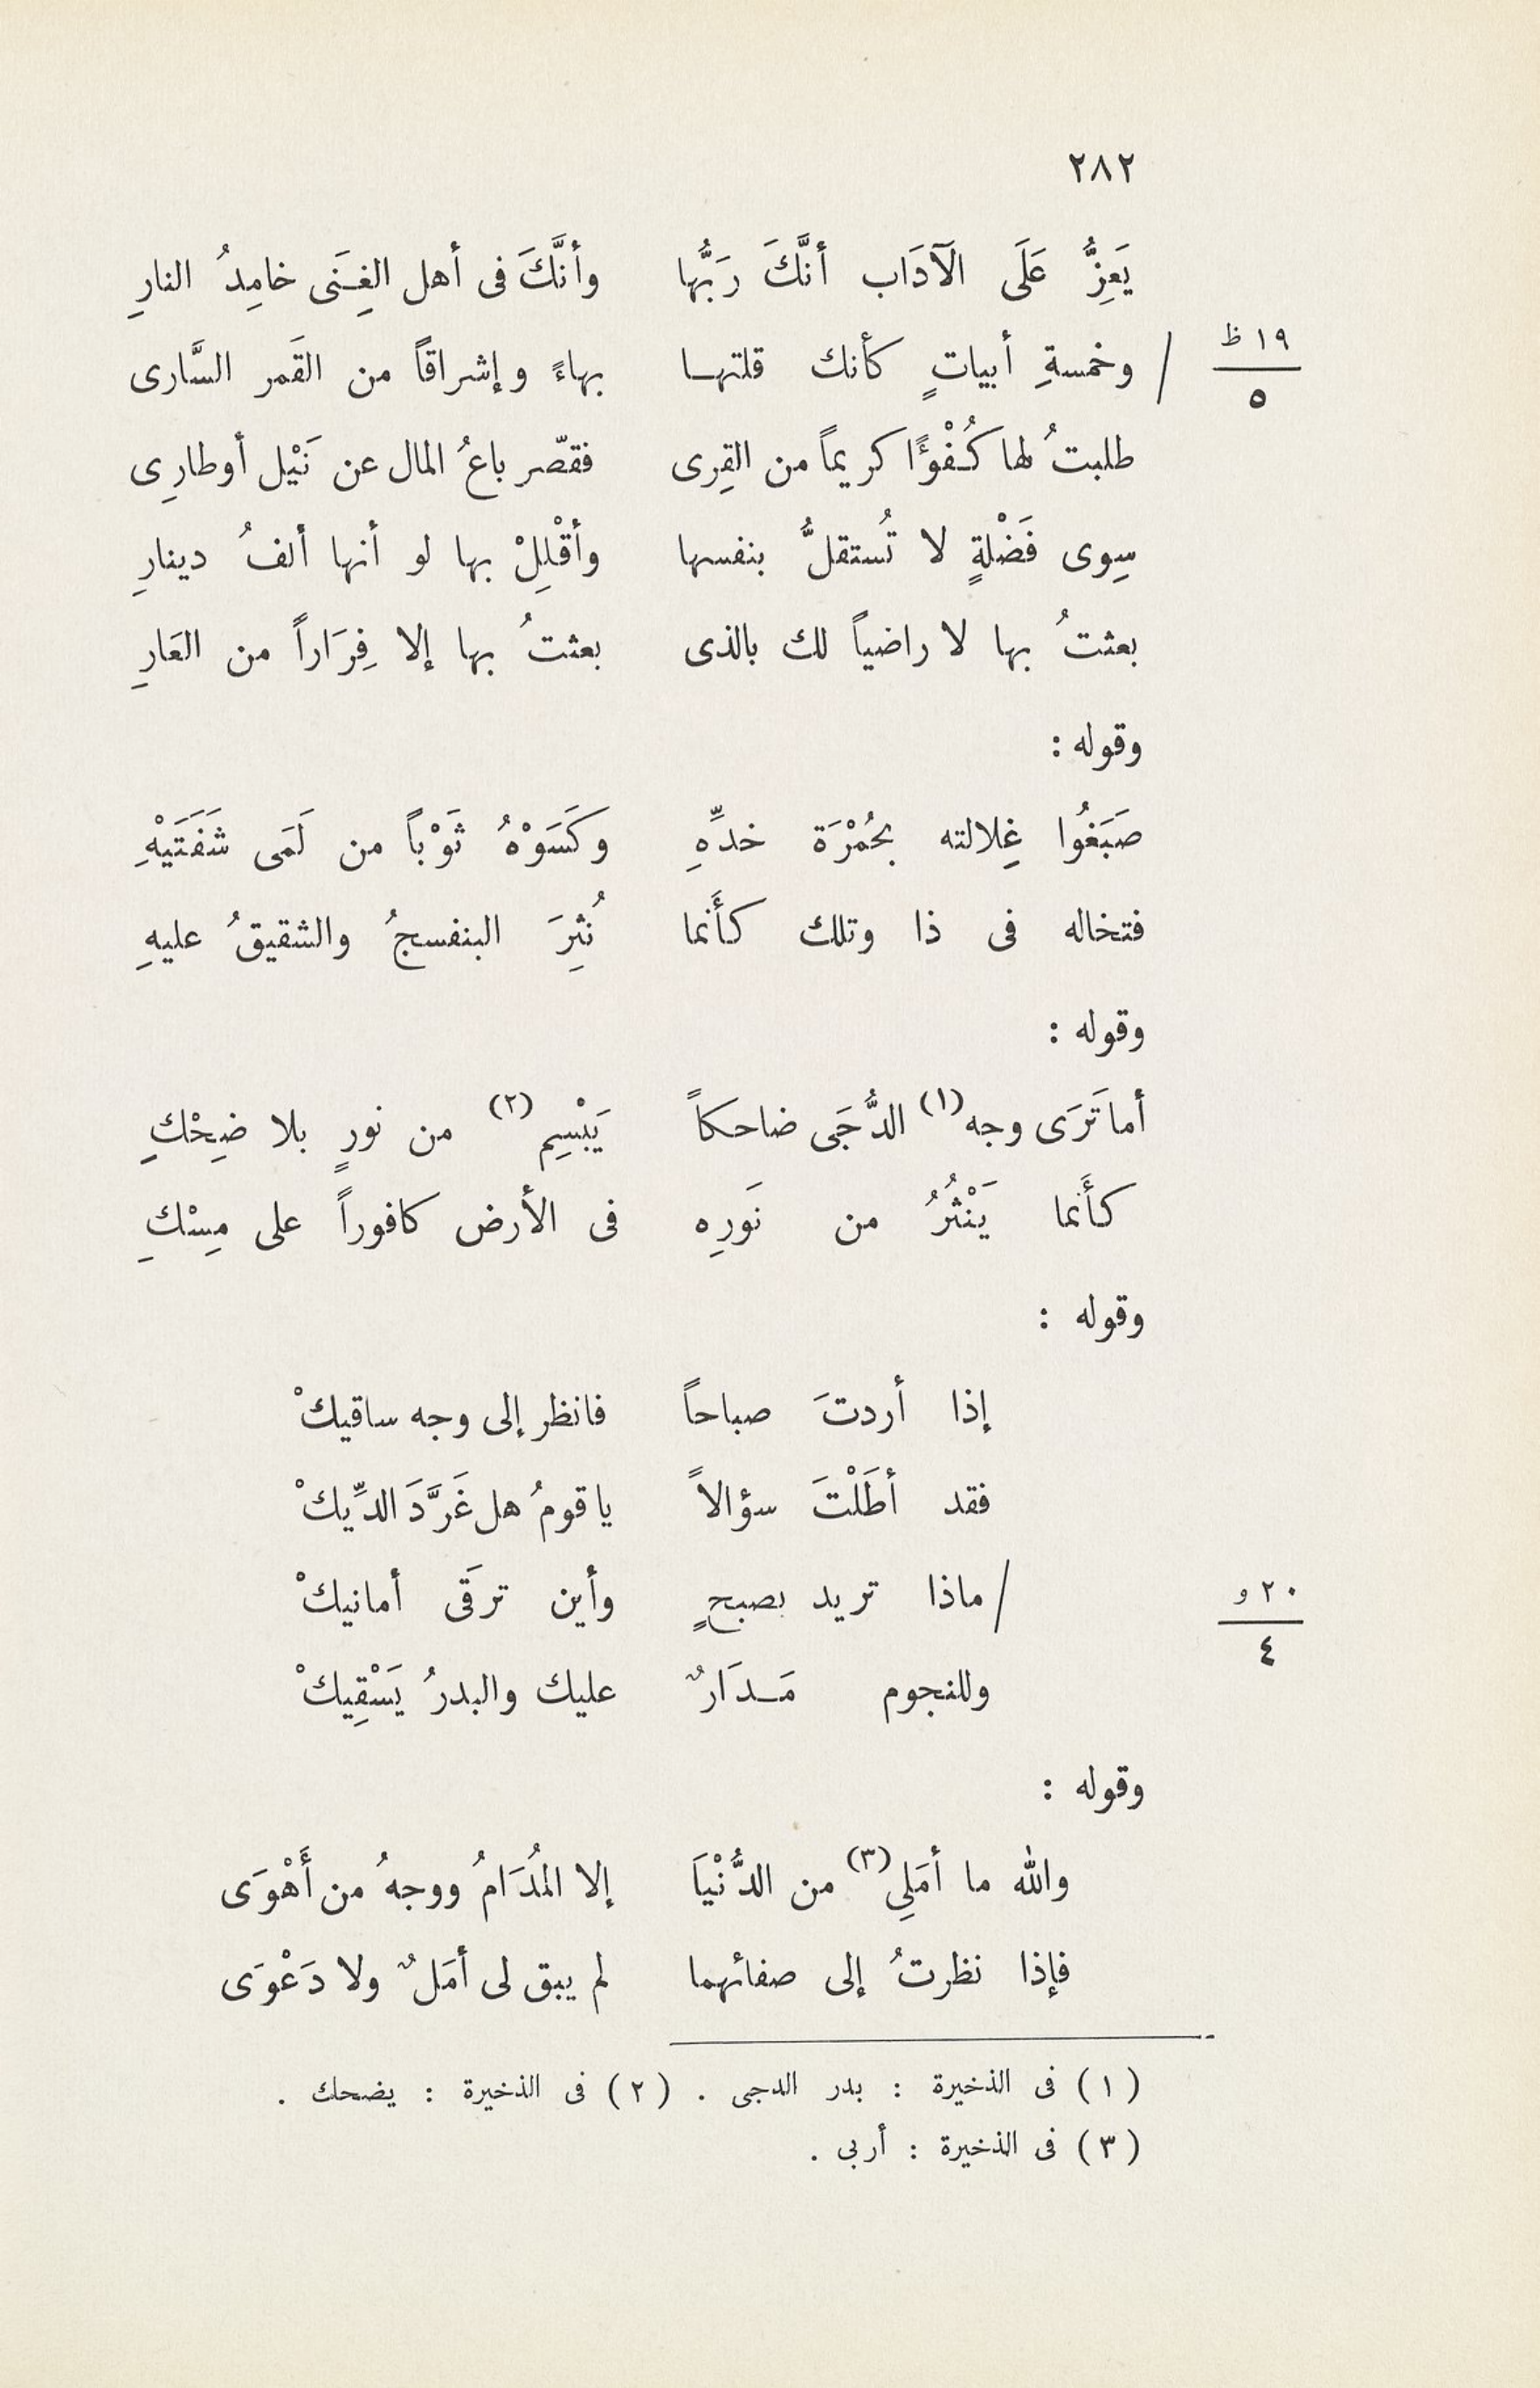 ٢٨٢
يَعِزُّ عَلَى الآدَاب أنَّكَ رَبُّها وأنَّكَ فى أهل الغِنَى خامِدُ النارِ
١٩ ظ / وخمسةِ أبياتٍ كأنك قلتها بهاءً وإشراقاً من القَمر السَّارى
٥
طلبتُ لها كُفْوًّا كريماً من القِرى فقصّر باعُ المال عن نَيْل أوطارِى
سِوى فَضْلةٍ لا تُستقلُّ بنفسها وأقْلِلْ بها لو أنها ألفُ دينارِ
بعثتُ بها لا راضياً لك بالذى بعثتُ بها إلا فِرَاراً من العَارِ
وقوله :
صَبَغُوا غِلالته بحُمْرَة خدِّهِ وكَسَوْهُ ثَوْباً من لَمَى شَفَتَيْهِ
فتخاله فى ذا وتلك كأَنما نُثِرَ البنفسجُ والشقيقُ عليهِ
وقوله :
أما تَرَى وجه(١) الدُّجَى ضاحكاً يَبْسِم(٢) من نورٍ بلا ضِحْكِ
كأَنما يَنْثُرُ من نَورِه فى الأرض كافوراً على مِسْكِ
وقوله :
إذا أردتَ صباحاً فانظر إلى وجه ساقيكْ
فقد أطَلْتَ سؤالاً يا قومُ هل غَرَّدَ الدِّيكْ
٢٠ و /ماذا تريد بصبحٍ وأين ترقَى أمانيكْ
٤
وللنجوم مَدَارٌ عليك والبدرُ يَسْقِيكْ
وقوله :
والله ما أمَلِى(٣) من الدُّنْيَا إلا المُدَامُ ووجهُ من أَهْوَى
فإذا نظرتُ إلى صفائهما لم يبق لى أمَلٌ ولا دَعْوَى
(١) فى الذخيرة : بدر الدجى . (٢) فى الذخيرة : يضحك .
(٣) فى الذخيرة : أربى .